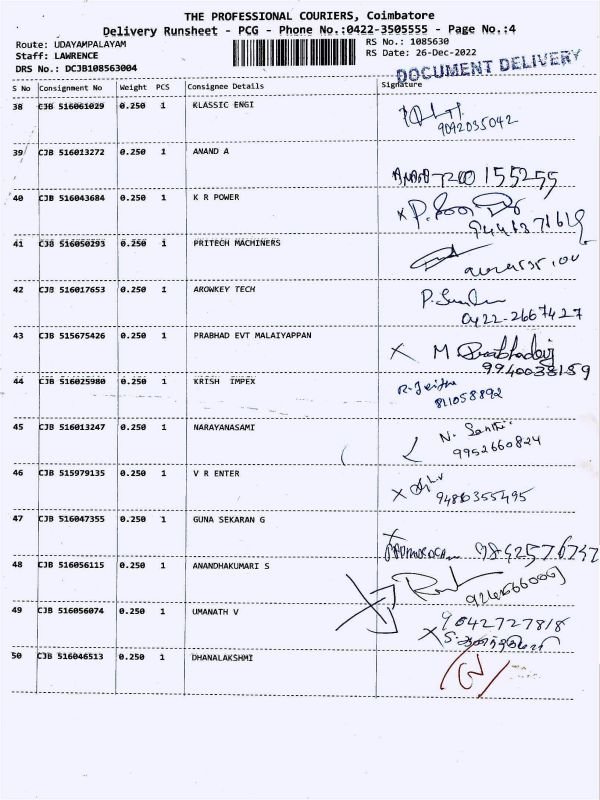 THE PROFESSIONAL COURIERS, Coimbatore
Delivery Runsheet - PCG - Phone No.:0422-3505555 - Page No.:4
Route: UDAYAMPALAYAM RS No.: 1085630
Staff: LAWRENCE RS Date: 26-Dec-2022
DRS No.: DCJB108563004
DOCUMENT DELIVERY
S No Consignment No Weight PCS Consignee Details Signature
38 CJB 516061029 0.250 1 KLASSIC ENGI
9092035042
39 CJB 516013272 0.250 1 ANAND A
7200 155255
40 CJB 516043684 0.250 1 K R POWER
41 CJB 516050293 0.250 1 PRITECH MACHINERS
42 CJB 516017653 0.250 1 AROWKEY TECH
0422-2667427
43 CJB 515675426 0.250 1 PRABHAD EVT MALAIYAPPAN
9940038159
44 CJB 516025980 0.250 1 KRISH IMPEX
811058892
45 CJB 516013247 0.250 1 NARAYANASAMI
N. Santhi
9952660824
46 CJB 515979135 0.250 1 V R ENTER
47 CJB 516047355 0.250 1 GUNA SEKARAN G
48 CJB 516056115 0.250 1 ANANDHAKUMARI S
49 CJB 516056074 0.250 1 UMANATH V
9042727818
50 CJB 516046513 0.250 1 DHANALAKSHMI